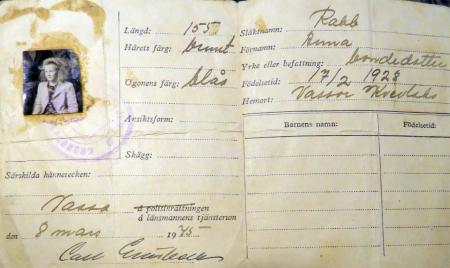 Längd: 155
Hårets färg: brunt
Ögonens färg: blå
Ansiktsform:
Skägg:
Särskilda kännetecken:
Vasa
å polisinrättningen
å länsmannens tjänsterum
den 8 mars 1945
Carl
Släktnamn: Rabb
Förnamn: Anna
Yrke eller befattning: bondedotter
Födelsetid: 17/2 1928
Hemort: Kvevlaks
Barnens namn:
Födelsetid: